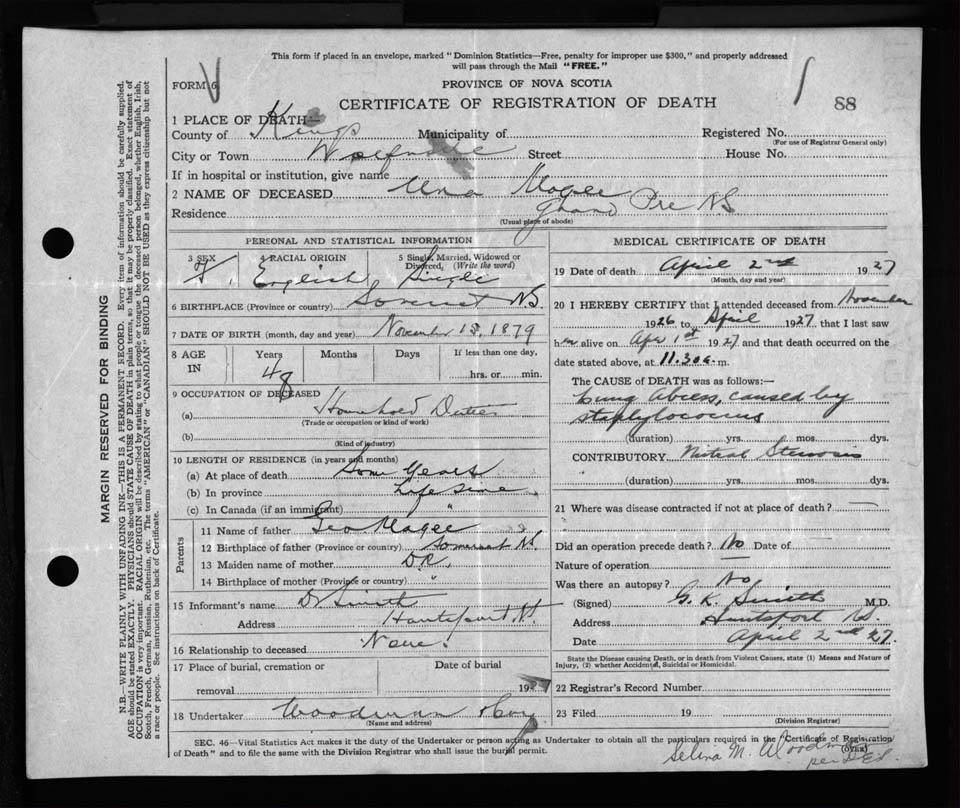 This form if placed in an envelope, marked "Dominion Statistics—Free, penalty for improper use $300," and properly addressed
will pass through the Mail "FREE."
FORM 6
PROVINCE OF NOVA SCOTIA
CERTIFICATE OF REGISTRATION OF DEATH
88
1 PLACE OF DEATH—
County of Kings Municipality of Registered No.
(For use of Registrar General only)
City or Town Wolfville Street House No.
If in hospital or institution, give name
2 NAME OF DECEASED Una Magee
Residence Grand Pre N.S
(Usual place of abode)
PERSONAL AND STATISTICAL INFORMATION
3 SEX 4 RACIAL ORIGIN 5 Single, Married, Widowed or
Divorced, (Write the word)
F. English Single
6 BIRTHPLACE (Province or country) Somerset N.S.
7 DATE OF BIRTH (month, day and year) November 18, 1879
8 AGE Years Months Days If less than one day,
IN 48 hrs. or min.
9 OCCUPATION OF DECEASED
(a) Household Duties
(Trade or occupation or kind of work)
(b)
(Kind of industry)
10 LENGTH OF RESIDENCE (in years and months)
(a) At place of death Some Years
(b) In province Life time
(c) In Canada (if an immigrant) "
Parents
11 Name of father Geo Magee
12 Birthplace of father (Province or country) Somerset N.S.
13 Maiden name of mother D.K.
14 Birthplace of mother (Province or country) "
15 Informant's name Dr Smith
Address Hantsport N.S.
16 Relationship to deceased None.
17 Place of burial, cremation or Date of burial
removal 192
18 Undertaker Woodman & Co
(Name and address)
MEDICAL CERTIFICATE OF DEATH
19 Date of death April 2nd 1927
(Month, day and year)
20 I HEREBY CERTIFY that I attended deceased from November
1926 to April 1927, that I last saw
her alive on Apr 1st 1927 and that death occurred on the
date stated above, at 11.30 a. m.
The CAUSE of DEATH was as follows:—
Lung Abcess, caused by
staphylococcus
(duration) yrs. mos. dys.
CONTRIBUTORY Mitral Stenosis
(duration) yrs. mos. dys.
21 Where was disease contracted if not at place of death?
Did an operation precede death? No Date of
Nature of operation
Was there an autopsy? No
(Signed) G. K. Smith M.D.
Address Hantsport N.S.
Date April 2nd 27.
State the Disease causing Death, or in death from Violent Causes, state (1) Means and Nature of
Injury, (2) whether Accidental, Suicidal or Homicidal.
22 Registrar's Record Number
23 Filed 19
(Division Registrar)
SEC. 46—Vital Statistics Act makes it the duty of the Undertaker or person acting as Undertaker to obtain all the particulars required in the "Certificate of Registration
of Death" and to file the same with the Division Registrar who shall issue the burial permit.
Selina M. Woodman
per
MARGIN RESERVED FOR BINDING
N.B.—WRITE PLAINLY WITH UNFADING INK—THIS IS A PERMANENT RECORD. Every item of information should be carefully supplied.
AGE should be stated EXACTLY. PHYSICIANS should STATE CAUSE OF DEATH in plain terms, so that it may be properly classified. Exact statement of
OCCUPATION is very important. RACIAL ORIGIN will be described by stating to what people or tongue the deceased person belonged, whether English, Irish,
Scotch, French, German, Russian, Ruthenian, etc. The terms "AMERICAN" or "CANADIAN" SHOULD NOT BE USED as they express citizenship but not
a race or people. See instructions on back of Certificate.